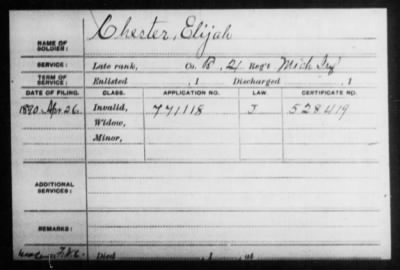 NAME OF SOLDIER: Chester, Elijah
SERVICE: Late rank, Co. B, 21 Reg't Mich Inf
TERM OF SERVICE: Enlisted , 1 Discharged , 1
DATE OF FILING. CLASS. APPLICATION NO. LAW. CERTIFICATE NO.
1890 Apr 26. Invalid, 771118 J 528419
Widow,
Minor,
ADDITIONAL SERVICES:
REMARKS:
Died , 1 , at